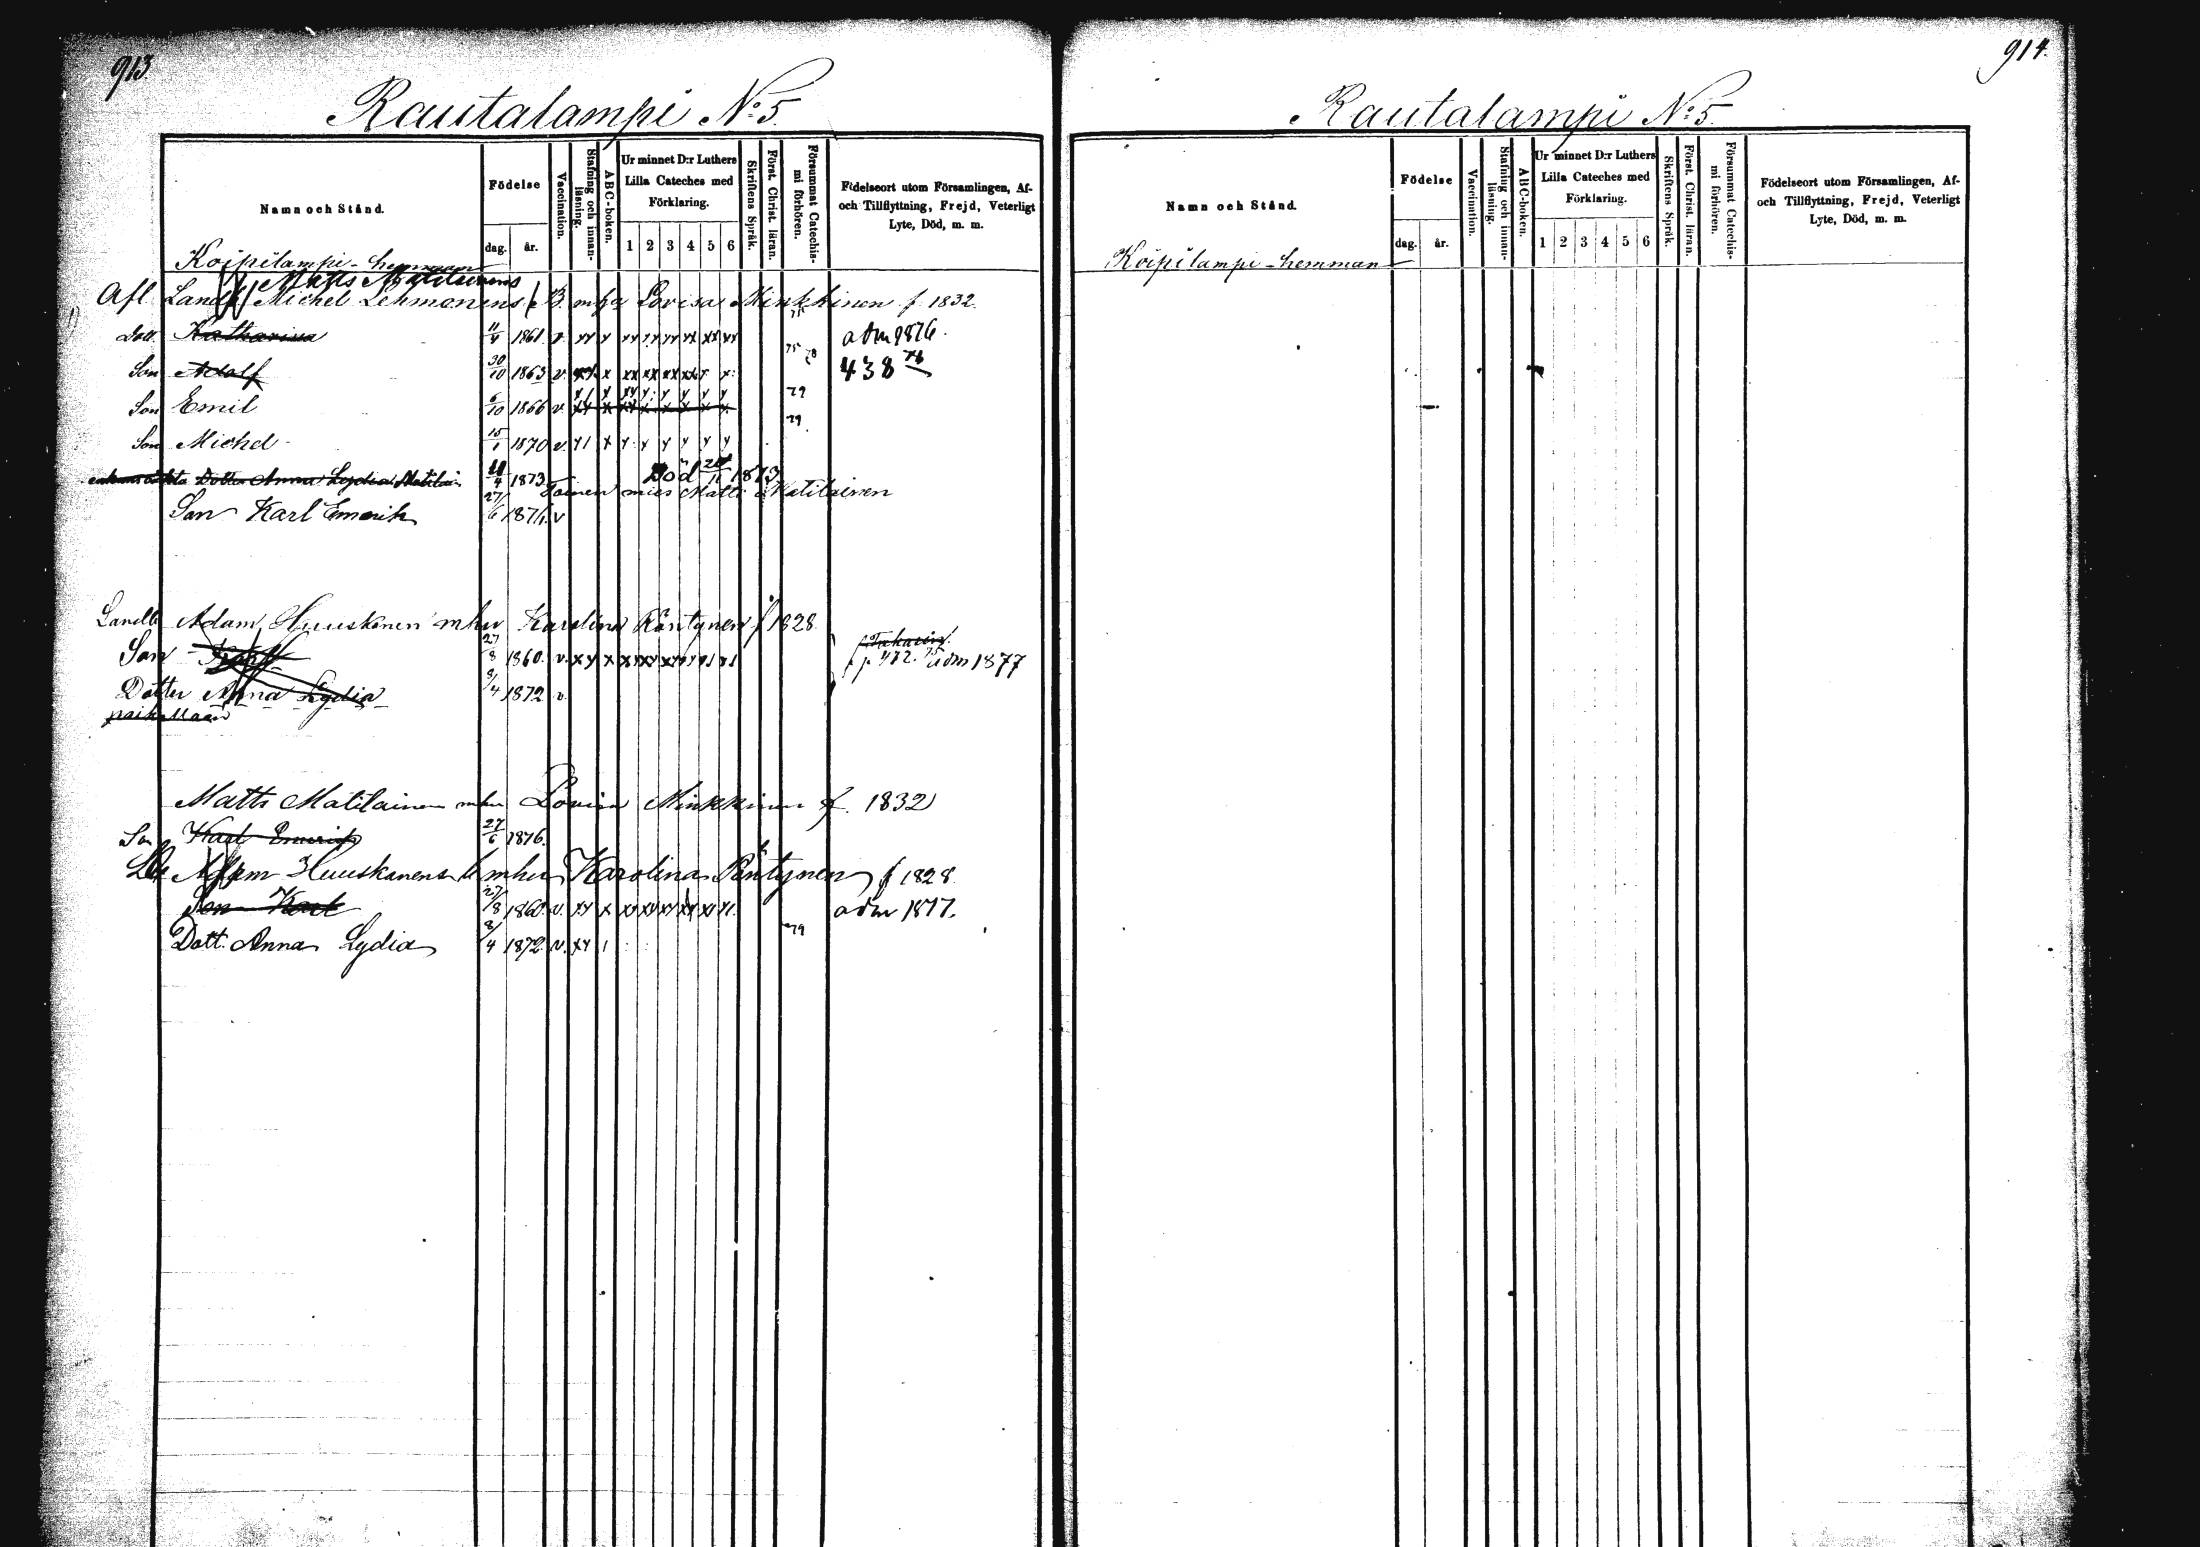 913.
Rautalampi No 5.
Namn och Stånd.
Födelse
dag.
år.
Vaccination.
Stafning och innan-
läsning.
ABC-boken.
Ur minnet D:r Luthers
Lilla Cateches med
Förklaring.
1 2 3 4 5 6
Skriftens Språk.
Först. Christ. läran.
Försummat Catechis-
mi förhören.
Födelseort utom Församlingen, Af-
och Tillflyttning, Frejd, Veterligt
Lyte, Död, m. m.
Koipilampi-hemman
Matts Matilainens
Afl. Michel Lehmonens Lovisa Minkkinen f. 1832.
75
Dott. Katharina 11/4 1861 v. xy y xy yy xy yx xx xy adm 1876.
75 78
Son Adolf 30/10 1863 v. x xx xx xx xx x 438 76
79
Son Emil 6/10 1866 v.
79
Son Michel 15/1 1870 v. y1 x y y y y y y
Dotter Anna Lydia 11/4 1873 Död 1873
Toinen mies Matti Matilainen
Son Karl Emerik 27/6 1876. v
Adam Huuskonen mhu Karolina Räntynen f 1828.
Son Karl 27/8 1860. v. xy x p 472. 75 adm 1877
Dotter Anna Lydia 8/4 1872 v.
Matts Matilainen mhu Lovisa Minkkinen f. 1832
Son Karl Emerik 27/6 1876.
Adam Huuskonens mhu Karolina Räntynen f 1828.
Son Karl 27/8 1860. v. xy x xy xy xy xy xy adm 1877.
79
Dott. Anna Lydia 8/4 1872. v. xy 1
914.
Rautalampi No 5.
Namn och Stånd.
Födelse
dag.
år.
Vaccination.
Stafning och innan-
läsning.
ABC-boken.
Ur minnet D:r Luthers
Lilla Cateches med
Förklaring.
1 2 3 4 5 6
Skriftens Språk.
Först. Christ. läran.
Försummat Catechis-
mi förhören.
Födelseort utom Församlingen, Af-
och Tillflyttning, Frejd, Veterligt
Lyte, Död, m. m.
Koipilampi-hemman